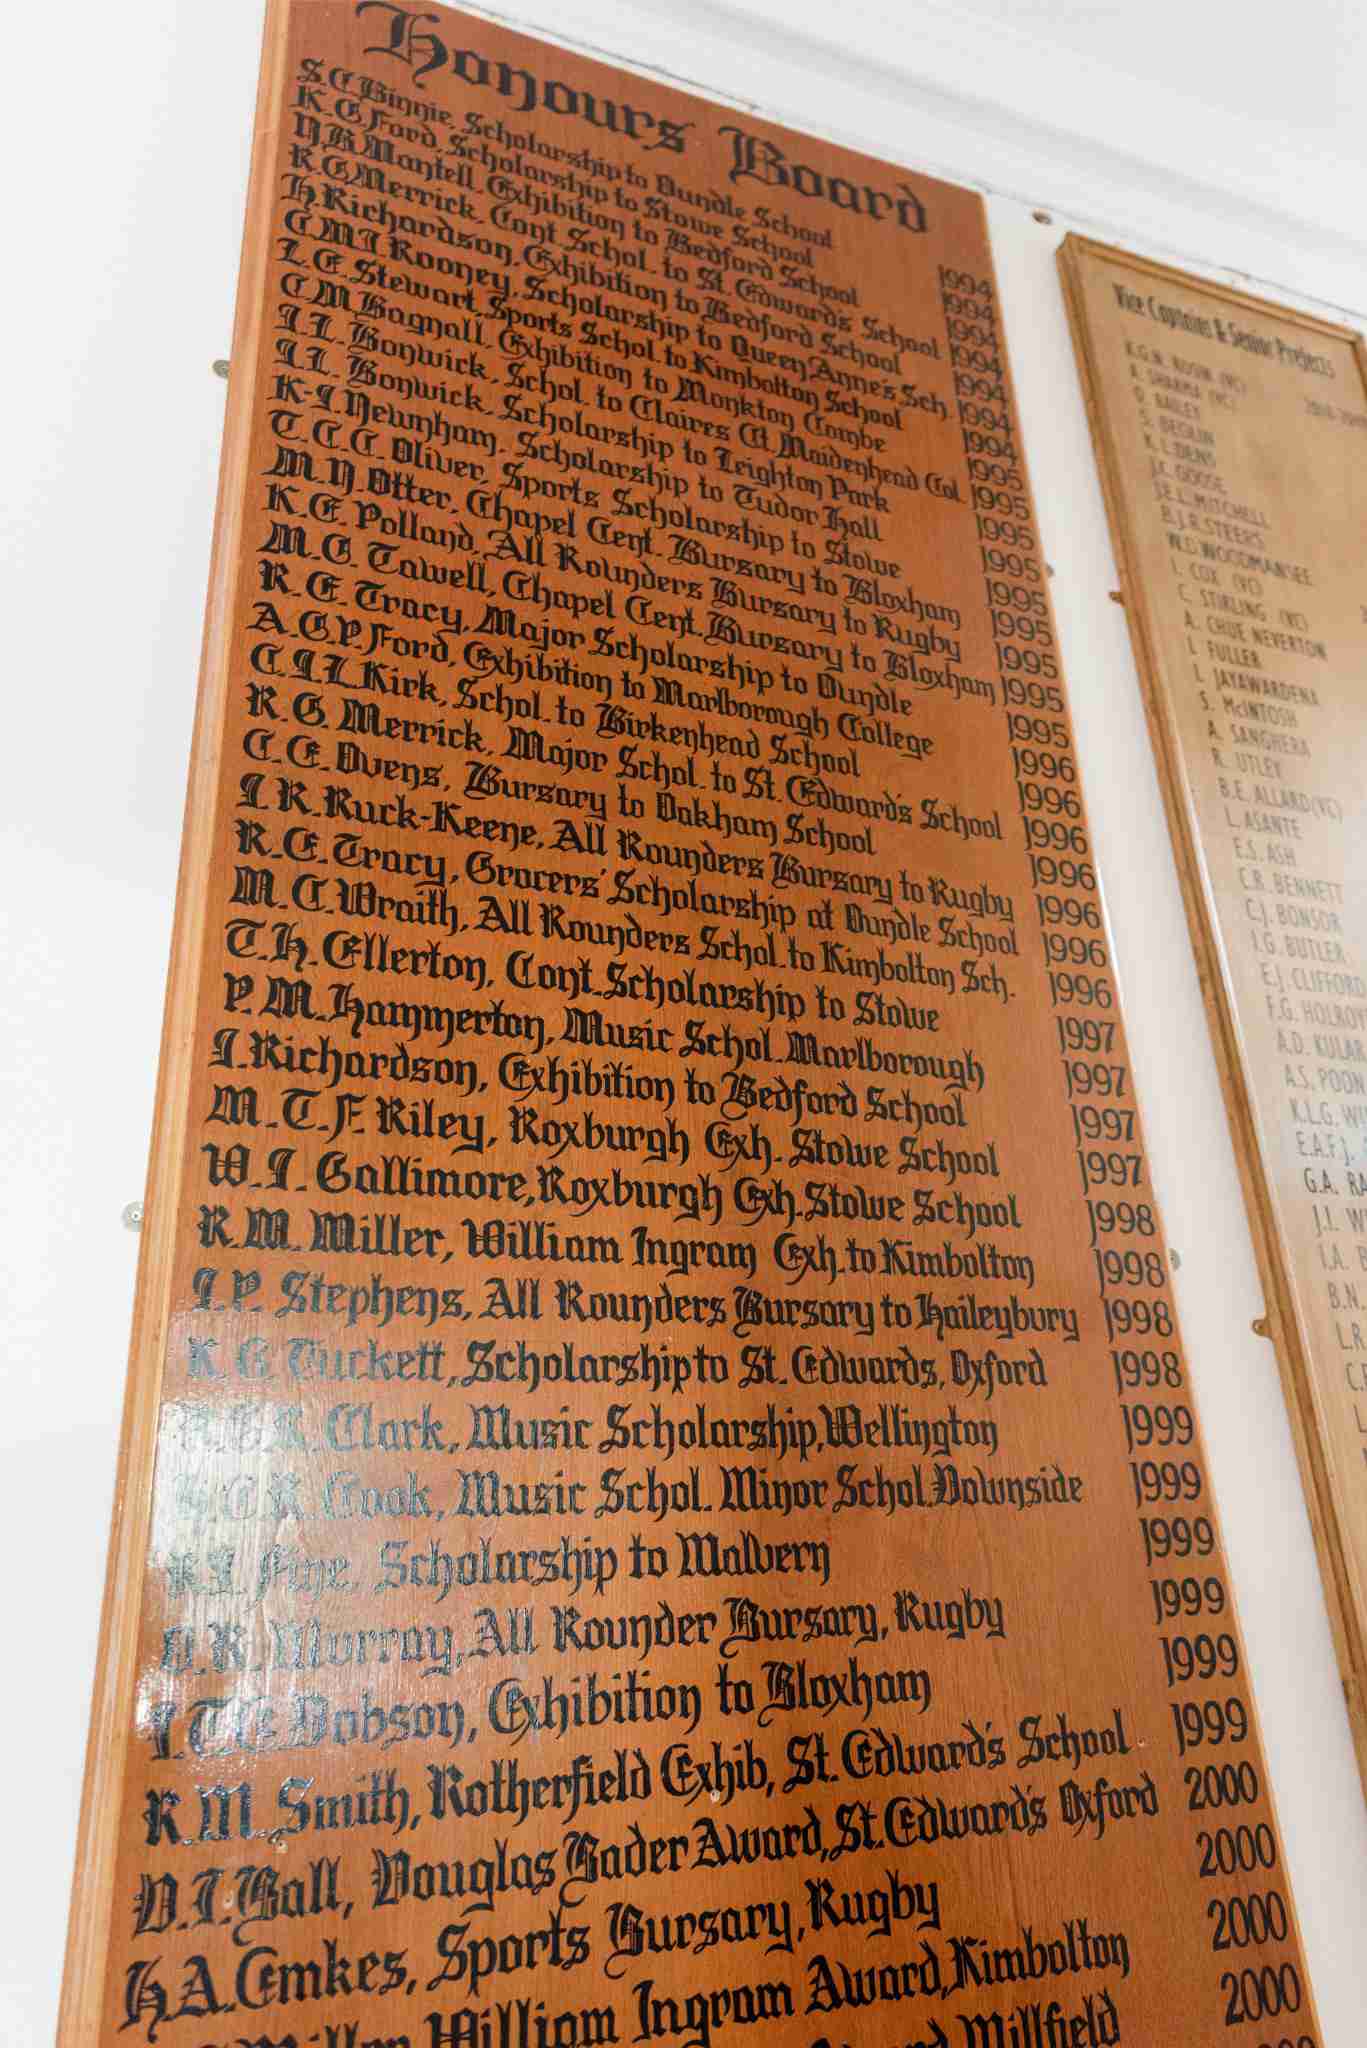 Honours Board
S.C. Binnie, Scholarship to Oundle School 1994
K.G. Ford, Scholarship to Stowe School 1994
N.B. Mantell, Exhibition to Bedford School 1994
R.G. Merrick, Cont. Schol. to St. Edward's School 1994
H. Richardson, Exhibition to Bedford School 1994
C.M.I. Rooney, Scholarship to Queen Anne's Sch. 1994
L.E. Stewart, Sports Schol. to Kimbolton School 1994
C.M. Bagnall, Exhibition to Monkton Combe 1995
I.L. Bonwick, Schol. to Claires Ct. Maidenhead Col. 1995
I.L. Bonwick, Scholarship to Leighton Park 1995
K-J. Newnham, Scholarship to Tudor Hall 1995
T.C.C. Oliver, Sports Scholarship to Stowe 1995
M.N. Otter, Chapel Cent. Bursary to Bloxham 1995
K.E. Polland, All Rounders Bursary to Rugby 1995
M.G. Tawell, Chapel Cent. Bursary to Bloxham 1995
R.E. Tracy, Major Scholarship to Oundle 1995
A.G.P. Ford, Exhibition to Marlborough College 1996
C.I.L. Kirk, Schol. to Birkenhead School 1996
R.G. Merrick, Major Schol. to St. Edward's School 1996
C.E. Ovens, Bursary to Oakham School 1996
J.R. Ruck-Keene, All Rounders Bursary to Rugby 1996
R.E. Tracy, Grocers' Scholarship at Oundle School 1996
M.C. Wraith, All Rounders Schol. to Kimbolton Sch. 1996
T.H. Ellerton, Cont. Scholarship to Stowe 1997
P.M. Hammerton, Music Schol. Marlborough 1997
J. Richardson, Exhibition to Bedford School 1997
M.T.F. Riley, Roxburgh Exh. Stowe School 1997
W.J. Gallimore, Roxburgh Exh. Stowe School 1998
R.M. Miller, William Ingram Exh. to Kimbolton 1998
J.P. Stephens, All Rounders Bursary to Haileybury 1998
R.G. Tuckett, Scholarship to St. Edwards, Oxford 1998
Clark, Music Scholarship, Wellington 1999
Cook, Music Schol. Minor Schol. Downside 1999
Fine, Scholarship to Malvern 1999
Murray, All Rounder Bursary, Rugby 1999
Dobson, Exhibition to Bloxham 1999
R.M. Smith, Rotherfield Exhib, St. Edward's School 1999
D.I. Ball, Douglas Bader Award, St. Edward's Oxford 2000
H.A. Emkes, Sports Bursary, Rugby 2000
Miller William Ingram Award, Kimbolton 2000
Millfield 2000
Vice Captains & Senior Prefects
A. SHARMA (VC)
O. BAILEY
S. BEGLIN
K.L. DENS
J.C. GOOSE
J.E.L. MITCHELL
B.J.R. STEERS
W.D. WOODMANSEE
I. COX (VC)
C. STIRLING (VC)
A. CHUE NEVERTON
L. FULLER
L. JAYAWARDENA
S. McINTOSH
A. SANGHERA
R. UTLEY
B.E. ALLARD (VC)
L. ASANTE
E.S. ASH
C.R. BENNETT
C.J. BONSOR
I.G. BUTLER
E.J. CLIFFORD
F.G. HOLROY
A.D. KULAR
A.S. POON
K.L.G. W
E.A.F.J.
G.A. RA
J.I. W
I.A. B
B.N.
L.R
C.
L